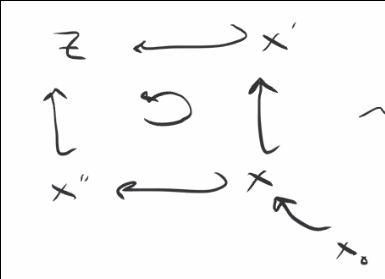 Z X'
X'' X
X₀